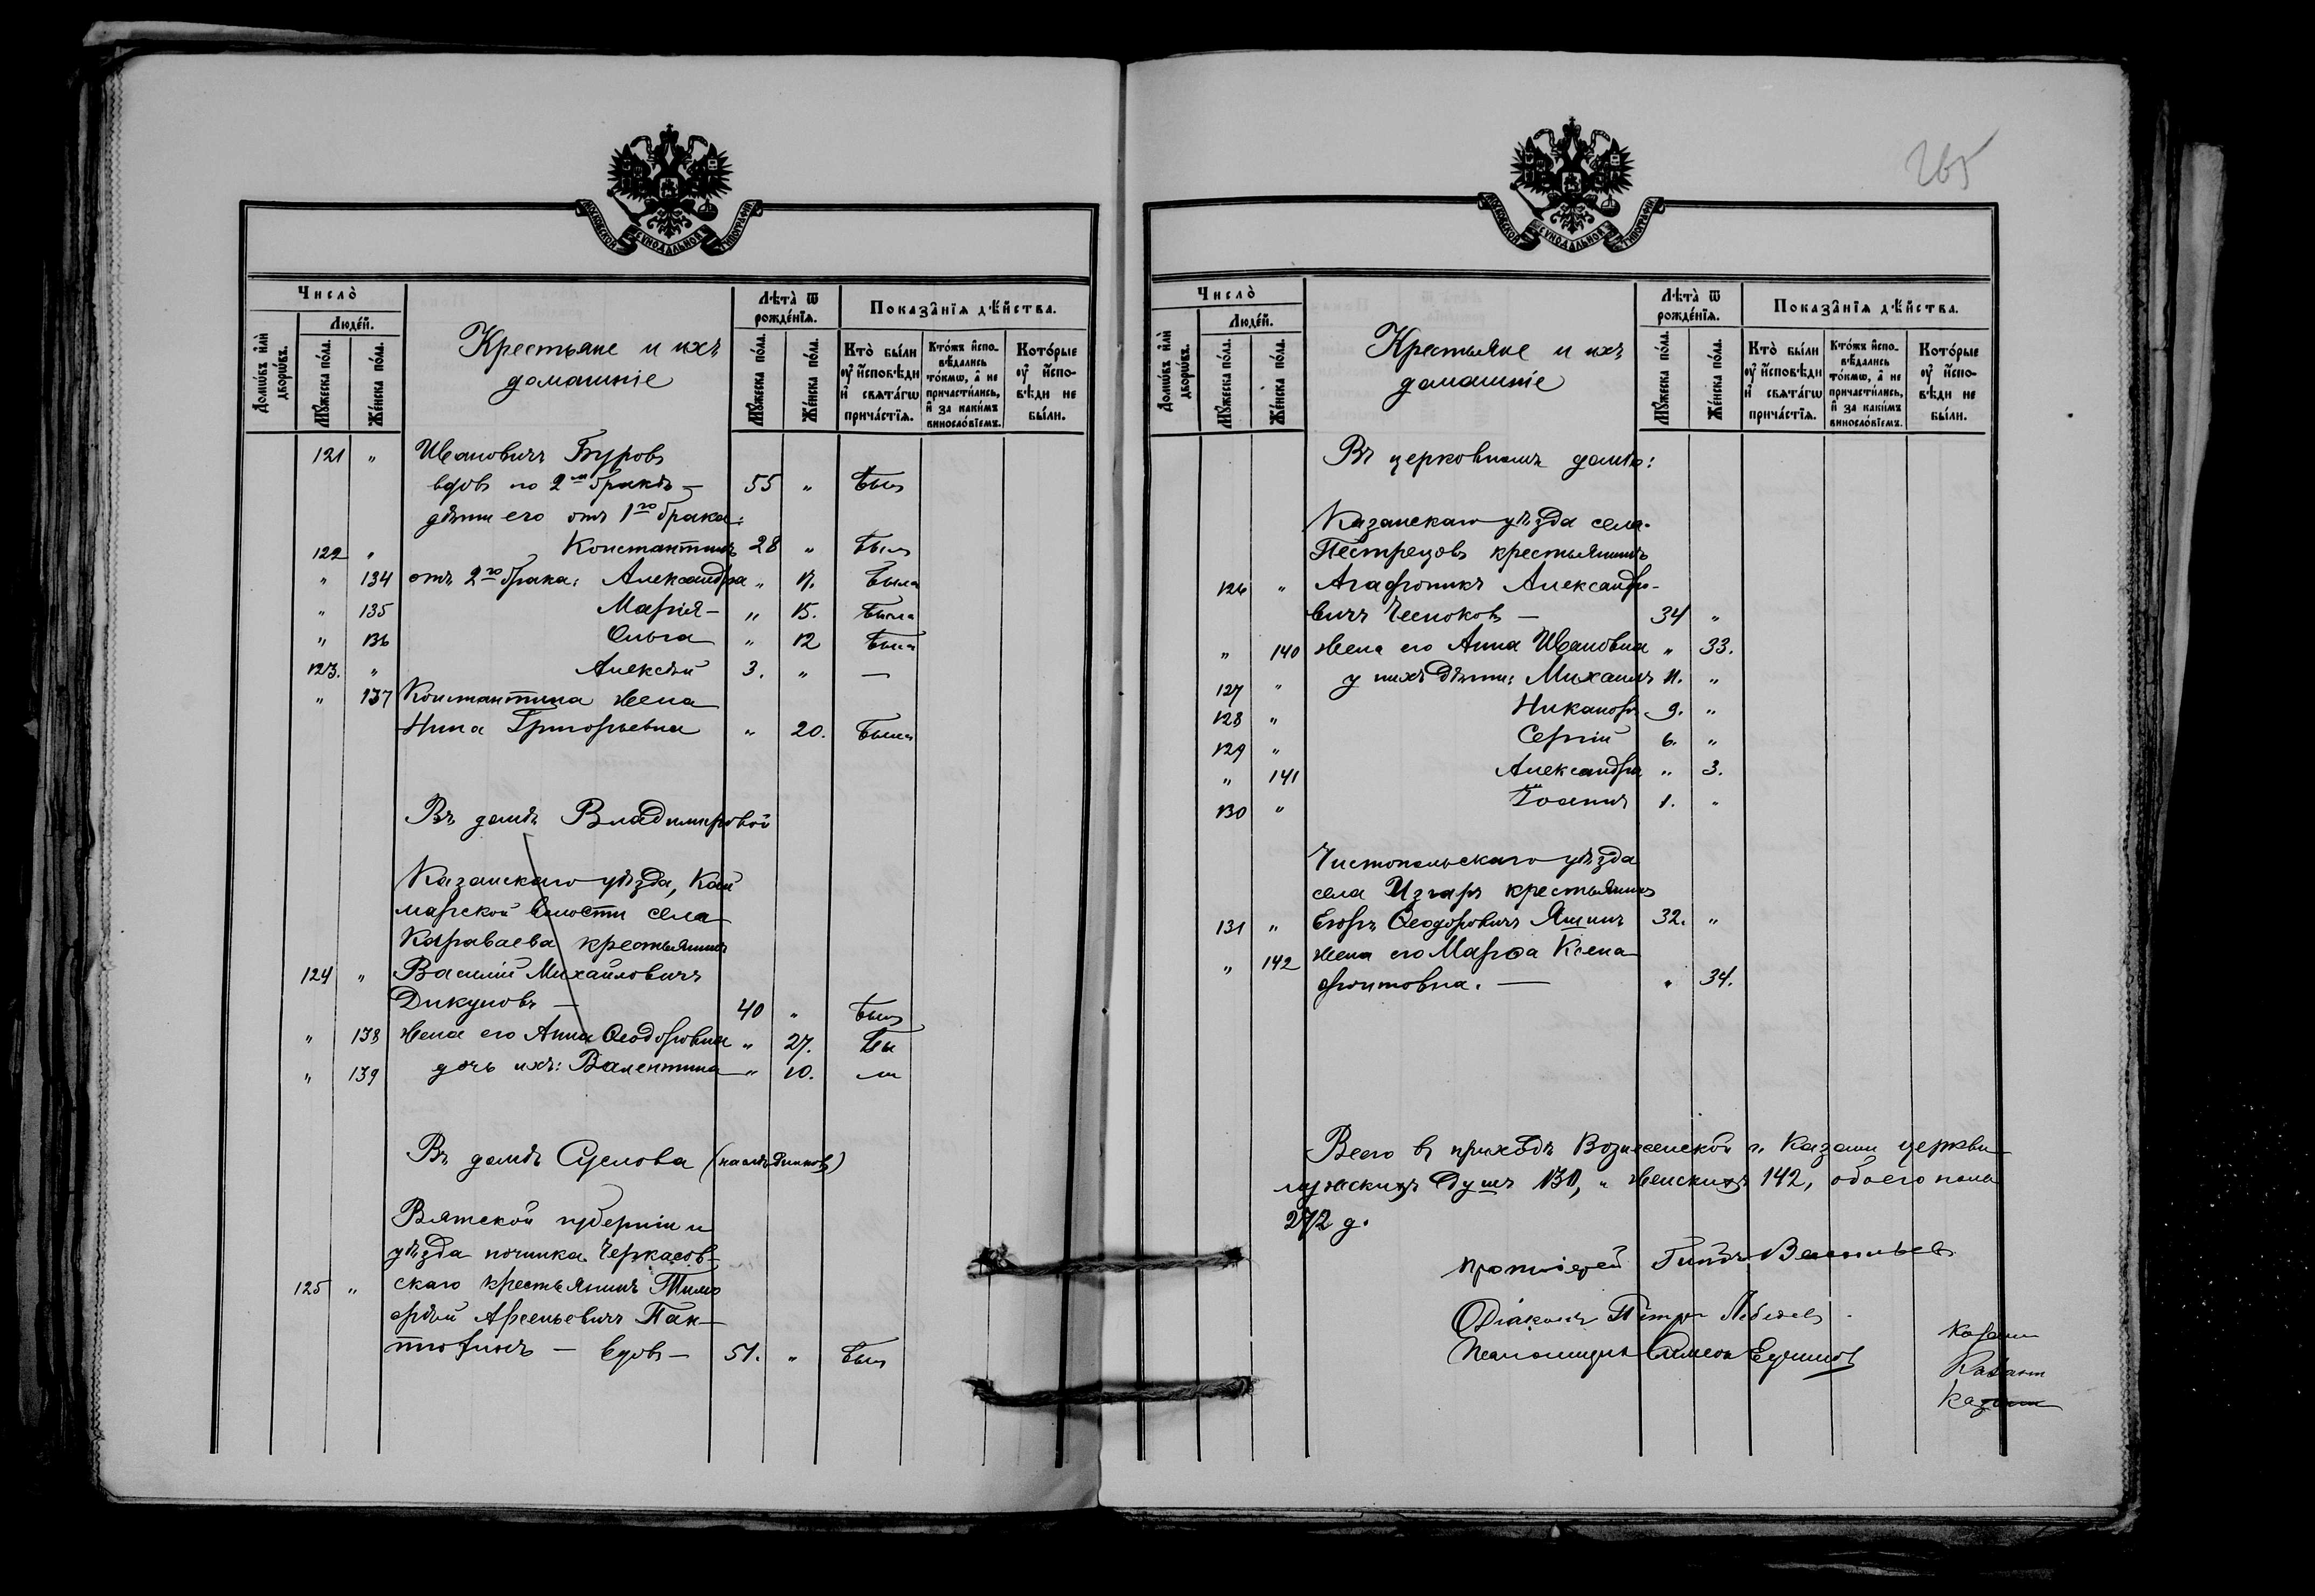 МОСКОВСКОЙ СѴНОДАЛЬНОЙ ТИПОГРАФІИ
Число̀
Домѡ́въ и҆лѝ дворѡ́въ.
Люде́й.
Мꙋ́жеска по́ла.
Же́нска по́ла.
Крестьяне и ихъ
домашніе
Лѣта̀ ѿ рожде́нїѧ.
Мꙋ́жеска по́ла.
Же́нска по́ла.
Показа̑нїѧ дѣ́йства.
Кто̀ бы́ли ᲂу҆ и҆́сповѣди и҆ свѧта́гѡ прича́стїѧ.
Кто́жъ и҆сповѣ́дались то́кмѡ, а҆ не причасти́лись, и҆ за каки́мъ виносло́вїемъ.
Кото́рые ᲂу҆ и҆́сповѣди не бы́ли.
121 " Ивановичъ Буровъ
вдовъ по 2мъ бракѣ — 55 " былъ
дѣти его отъ 1го брака:
122 " Константинъ 28 " былъ
" 134 отъ 2го брака: Александра " 17. была
" 135 Марія — " 15. была
" 136 Ольга " 12 была
123. " Алексѣй 3. " —
" 137 Константина жена
Нина Григорьевна " 20. была
Въ домѣ Владимировой
Казанскаго уѣзда, Кай
марской волости села
Караваева крестьянинъ
124 " Василій Михайловичъ
Дикуновъ — 40 " былъ
" 138 жена его Анна Ѳеодоровна " 27. бы
" 139 дочь ихъ: Валентина " 10. ли
Въ домѣ Суслова (наслѣдниковъ)
Вятской губерніи и
уѣзда починка Черкасов-
125 " скаго крестьянинъ Тимо
фѣй Арсеньевичъ Пак-
— вдовъ — 51. " былъ
265
МОСКОВСКОЙ СѴНОДАЛЬНОЙ ТИПОГРАФІИ
Число̀
Домѡ́въ и҆лѝ дворѡ́въ.
Люде́й.
Мꙋ́жеска по́ла.
Же́нска по́ла.
Крестьяне и ихъ
домашніе
Лѣта̀ ѿ рожде́нїѧ.
Мꙋ́жеска по́ла.
Же́нска по́ла.
Показа̑нїѧ дѣ́йства.
Кто̀ бы́ли ᲂу҆ и҆́сповѣди и҆ свѧта́гѡ прича́стїѧ.
Кто́жъ и҆сповѣ́дались то́кмѡ, а҆ не причасти́лись, и҆ за каки́мъ виносло́вїемъ.
Кото́рые ᲂу҆ и҆́сповѣди не бы́ли.
Въ церковномъ домѣ:
Казанскаго уѣзда села
Пестрецовъ крестьянинъ
126 " Агафоникъ Александро-
вичъ Чесноковъ — 34 "
" 140 жена его Анна Ивановна " 33.
127 " у нихъ дѣти: Михаилъ 11. "
128 " Никаноръ 9. "
129 " Сергій 6. "
" 141 Александра " 3.
130 " Іоаннъ 1. "
Чистопольскаго уѣзда
села Изгаръ крестьянинъ
131 " Егоръ Ѳеодоровичъ Яшинъ 32. "
" 142 жена его Марѳа Ксено
фонтовна. — " 34.
Всего въ приходѣ Вознесенской г. Казани церкви
мужскихъ душъ 130, " женскихъ 142, обоего пола
272 д.
Протоіерей Васильевъ
Діаконъ Петръ Лебедевъ
Псаломщикъ Симеонъ